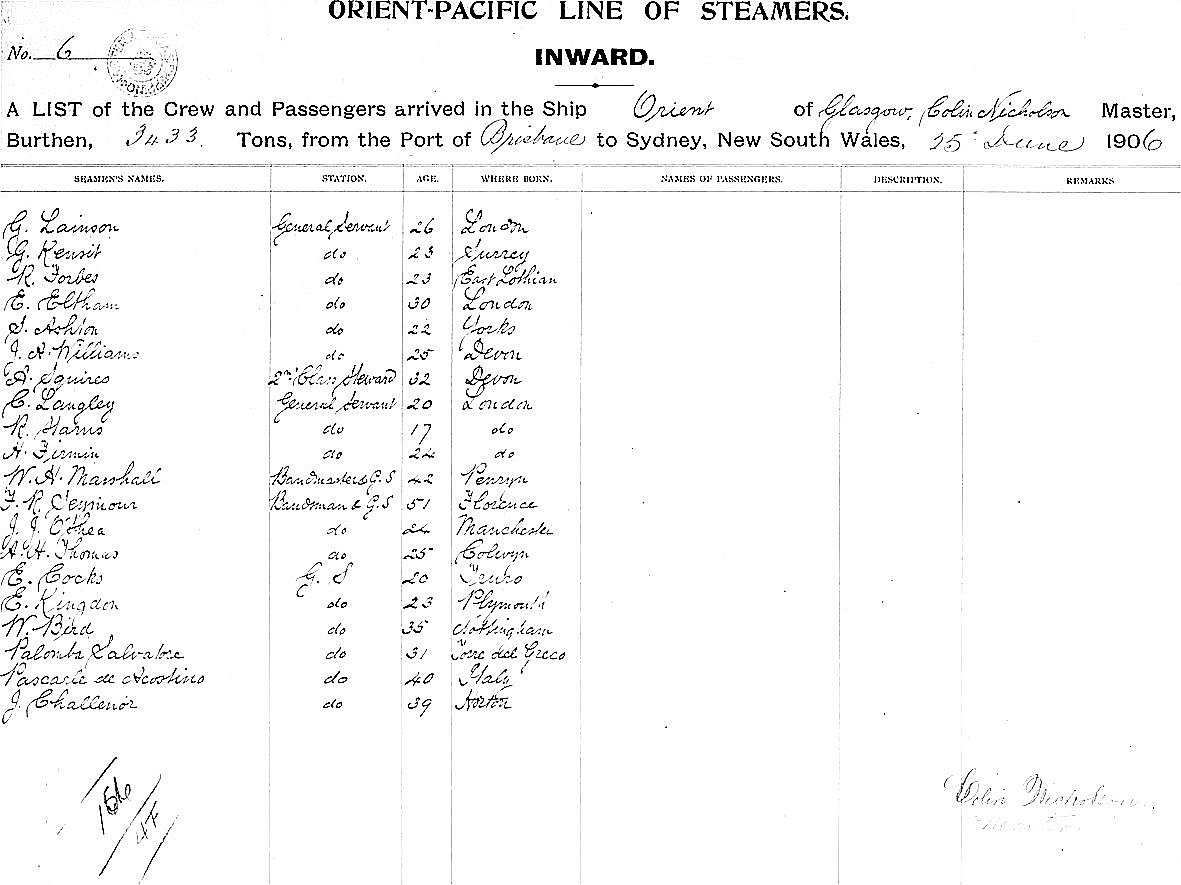 ORIENT-PACIFIC LINE OF STEAMERS.
No. 6
INWARD.
A LIST of the Crew and Passengers arrived in the Ship Orient of Glasgow, Colin Nicholson Master,
Burthen, 3433 Tons, from the Port of Brisbane to Sydney, New South Wales, 25 June 1906
SEAMEN'S NAMES. STATION. AGE. WHERE BORN. NAMES OF PASSENGERS. DESCRIPTION. REMARKS
G. Lainson General Servant 26 London
G. Kensit do 23 Surrey
R. Forbes do 23 East Lothian
E. Eltham do 30 London
S. Ashton do 22 Yorks
J. A. Williams do 25 Devon
A. Squires 2nd Class Steward 32 Devon
C. Langley General Servant 20 London
R. Harris do 17 do
H. Firmin do 24 do
W. H. Marshall Bandmaster & G.S 42 Penryn
F. R. Seymour Bandman & G.S 51 Florence
J. J. O'Shea do 24 Manchester
A. H. Thomas do 25 Colwyn
E. Cocks G. S 20 Truro
E. Kingdon do 23 Plymouth
W. Bird do 35 Nottingham
Palomba Salvatore do 31 Torre del Greco
Pascarle de Acostino do 40 Italy
J. Challenor do 39 Norton
Colin Nicholson
Master
156